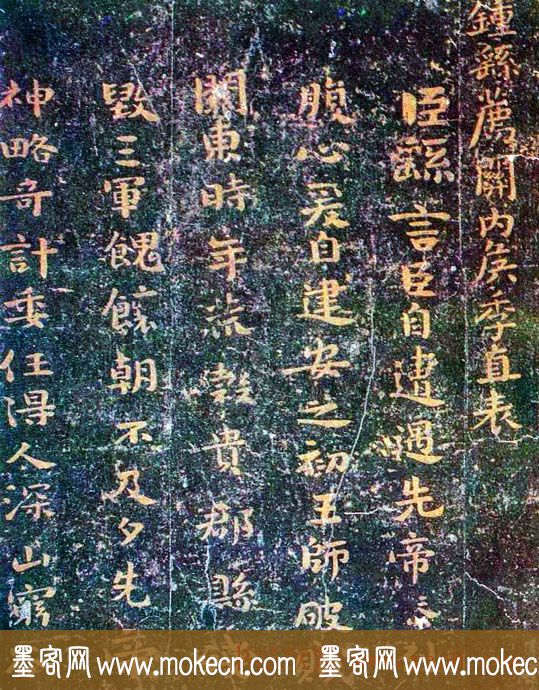 鍾繇薦關内侯季直表
臣繇言臣自遭遇先帝
腹心爰自建安之初王師破
關東時年荒穀貴郡縣
毀三軍餽饟朝不及夕先
神略奇計委任得人深山窮
墨客网 www.mokecn.com 墨客网 www.mokecn.com